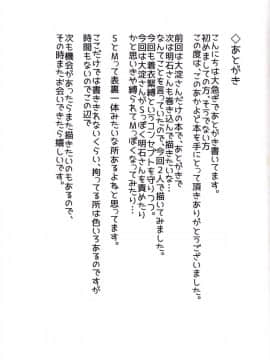 ◇あとがき
こんにちは大急ぎであとがき書いてます。
初めましての方、そうでない方
この度は、「このあかよど本を手にとって頂きありがとうございました。
前回は大淀さんだけの本で、あとがきで
次は明石さんと2巻さんで描きたいな…
なんてことを言っていたので、今回2人で描いてみました。
今回も着衣緊縛というコンセプトを守りつつ。
今回は大淀さんがSっぽく明石さんを責めたり
かと思いきや縛られてMっぽくなってみたり…
SとMって表裏一体みたいな所あるよねと思ってます。
ここだけでは書ききれないくらい、拘ってる所は色いろあるのですが
時間もないのでこの辺で
次も機会があったらまた描きたいのもあるので、
その時またお会いできたら嬉しいです。